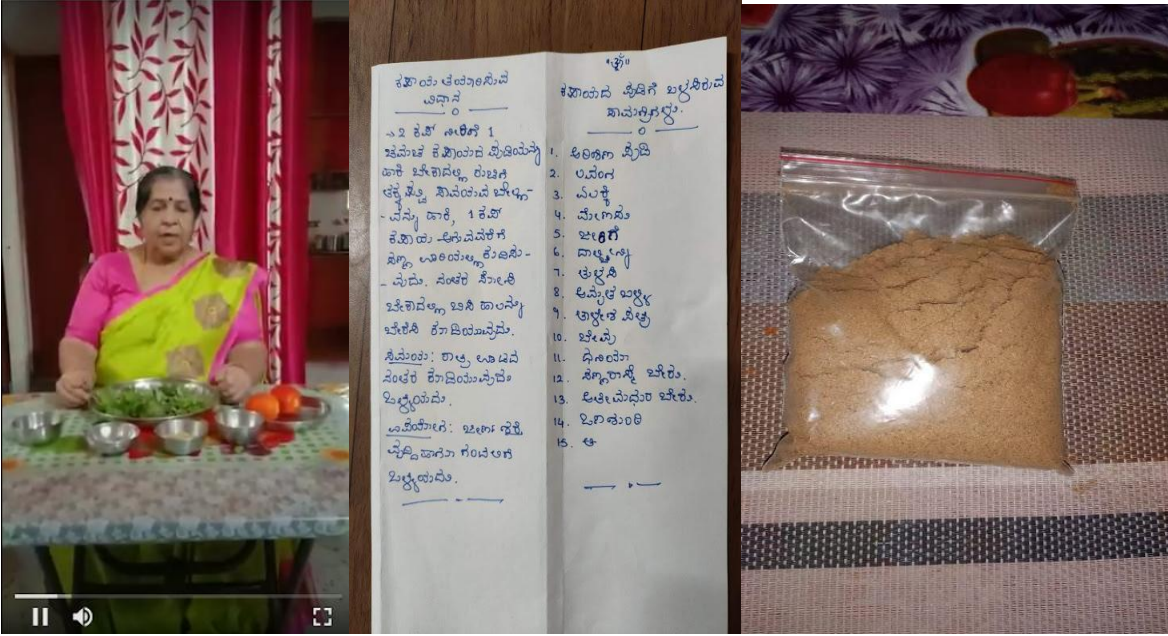 ಕಷಾಯ ತಯಾರಿಸುವ
ವಿಧಾನ
→ 2 ಕಪ್ ನೀರಿಗೆ 1
ಚಮಚ ಕಷಾಯದ ಪುಡಿಯನ್ನು
ಹಾಕಿ ಬೇಕಾದಲ್ಲಿ ರುಚಿಗೆ
ತಕ್ಕಷ್ಟು ಸಾವಯವ ಬೆಲ್ಲ-
-ವನ್ನು ಹಾಕಿ, 1 ಕಪ್
ಕಷಾಯ ಆಗುವವರೆಗೆ
ಸಣ್ಣ ಉರಿಯಲ್ಲಿ ಕುದಿಸು-
-ವುದು. ನಂತರ ಸೋಸಿ
ಬೇಕಾದಲ್ಲಿ ಬಿಸಿ ಹಾಲನ್ನು
ಬೆರೆಸಿ ಕುಡಿಯುವುದು.
ಸಮಯ: ರಾತ್ರಿ ಊಟದ
ನಂತರ ಕುಡಿಯುವುದು
ಒಳ್ಳೆಯದು.
ಉಪಯೋಗ: ಜೀರ್ಣ ಶಕ್ತಿ
ವೃದ್ಧಿ ಹಾಗೂ ಗಂಟಲಿಗೆ
ಒಳ್ಳೆಯದು.
"ಶ್ರೀ"
ಕಷಾಯದ ಪುಡಿಗೆ ಬಳಸಿರುವ
ಸಾಮಗ್ರಿಗಳು.
1. ಅರಿಶಿಣ ಪುಡಿ
2. ಲವಂಗ
3. ಏಲಕ್ಕಿ
4. ಮೆಣಸು
5. ಜೀರಿಗೆ
6. ದಾಲ್ಚಿನ್ನಿ
7. ತುಳಸಿ
8. ಅಮೃತ ಬಳ್ಳಿ
9. ತಾಳೀಶ ಪತ್ರ
10. ಬೇವು
11. ಧನಿಯಾ
12. ಸಣ್ಣರಾಸ್ನೆ ಬೇರು.
13. ಅತೀಮಧುರ ಬೇರು.
14. ಒಣಶುಂಠಿ
15. ಆ